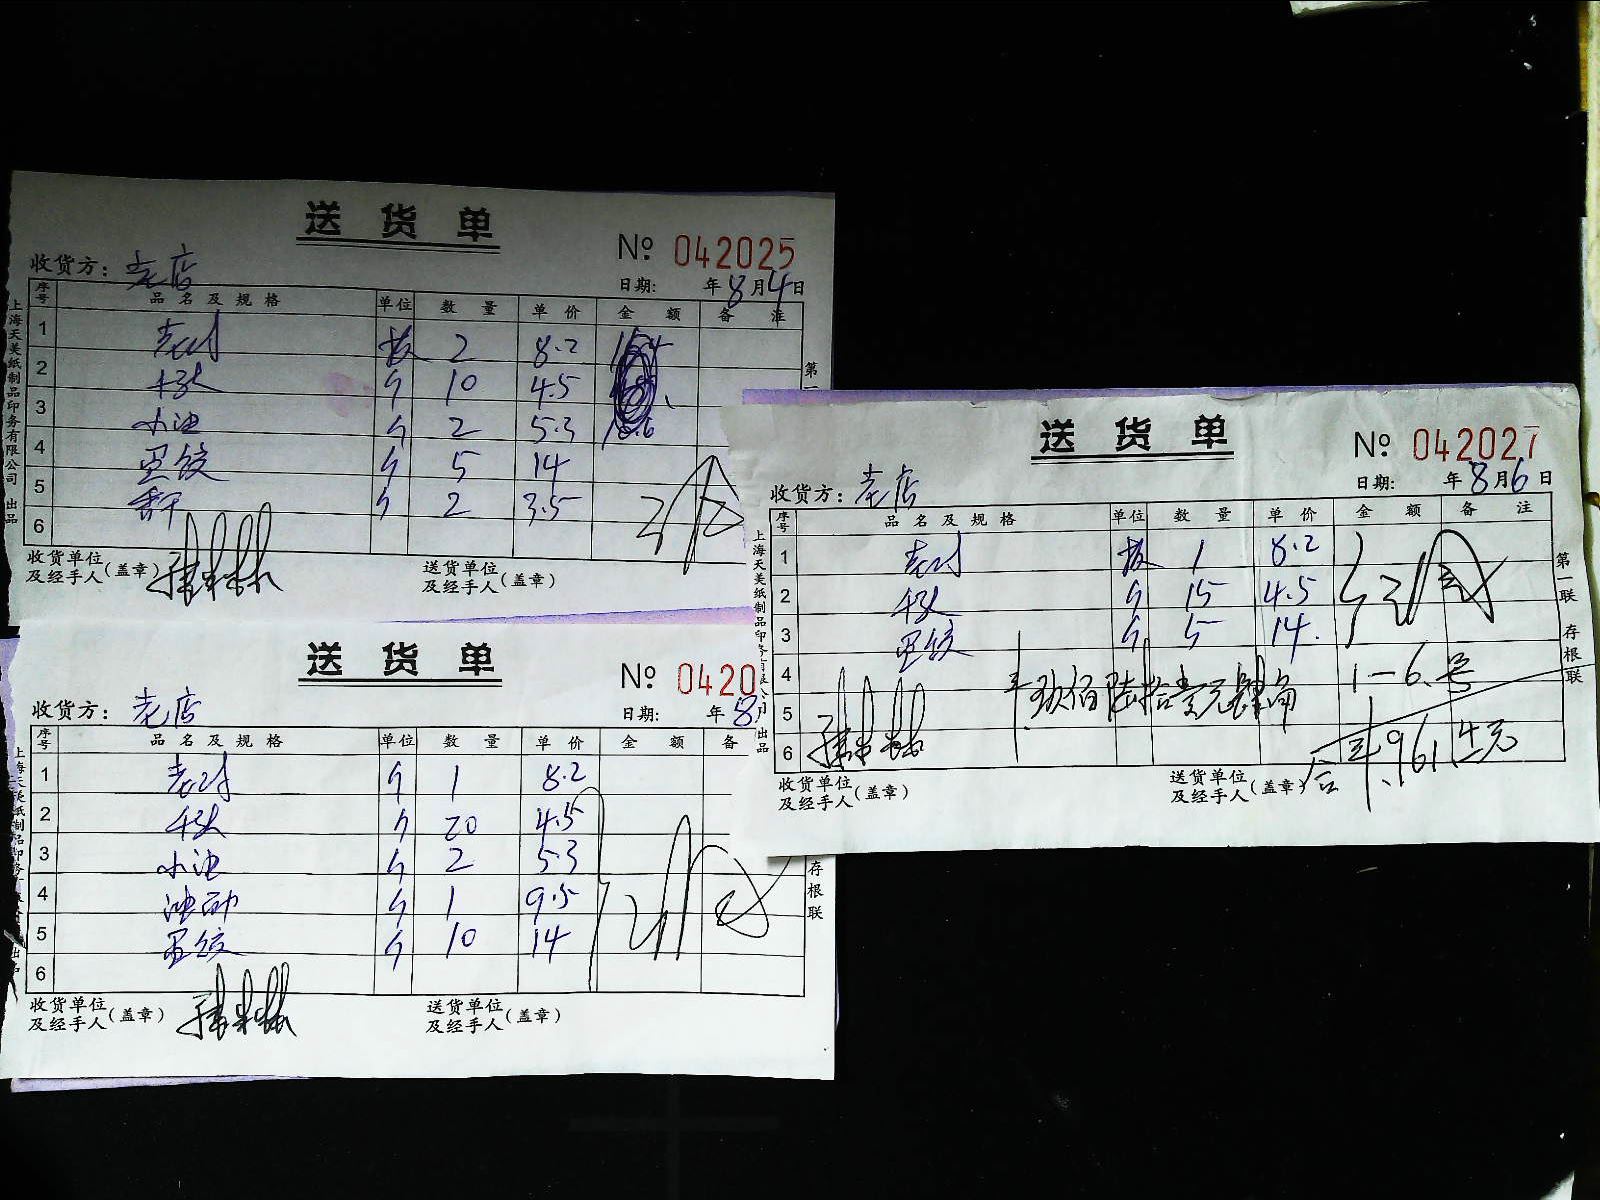 送货单
№ 042025
收货方：老店
日期: 年8月4日
序号 品名及规格 单位 数量 单价 金额 备注
1 板 2 8.2
2 千张 个 10 4.5
3 小油 个 2 5.3
4 蛋饺 个 5 14
5 香干 个 2 3.5
6
收货单位及经手人(盖章)
送货单位及经手人(盖章)
上海天美纸制品印务有限公司 出品
第一
送货单
№ 0420
收货方：老店
日期: 年8月
序号 品名及规格 单位 数量 单价 金额 备
1 个 1 8.2
2 千张 个 20 4.5
3 小油 个 2 5.3
4 个 1 9.5
5 蛋饺 个 10 14
6
收货单位及经手人(盖章)
送货单位及经手人(盖章)
存根联
送货单
№ 042027
收货方：老店
日期: 年8月6日
序号 品名及规格 单位 数量 单价 金额 备注
1 板 1 8.2
2 千张 个 15 4.5
3 蛋饺 个 5 14.
4 1-6.号
5 玖佰陆拾壹元肆角
6 合¥.961.4元
收货单位及经手人(盖章)
送货单位及经手人(盖章)
第一联 存根联